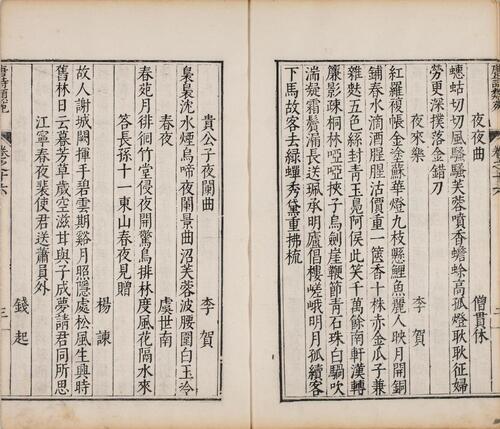 夜夜曲
僧貫休
蟪蛄切切風騷騷芙蓉噴香蟾蜍高孤燈耿耿征婦
勞更深撲落金錯刀
夜來樂
李賀
紅羅複帳金塗蘇華燈九枝懸鯉魚麗人映月開銅
鋪春水滴酒腥腥沽價重一篋香十株赤金瓜子兼
雜麩五色絲封青玉鳧阿侯此笑千萬餘南軒漢轉
簾影疎桐林啞啞挾子烏劍崖鞭節青石珠白騧吹
湍凝霜鬢滿長送珮承明廬倡樓嵯峨明月孤續客
下馬故客去綠蟬秀黛重拂梳
貴公子夜闌曲
李賀
裊裊沈水煙烏啼夜闌景曲沼芙蓉波腰圍白玉冷
春夜
虞世南
春苑月徘徊竹堂侵夜開驚鳥排林度風花隔水來
答長孫十一東山春夜見贈
楊諫
故人謝城闕揮手碧雲期谿月照隱處松風生興時
舊林日云暮芳草歲空滋甘與子成夢請君同所思
江寧春夜裴使君送蕭員外
錢起
三